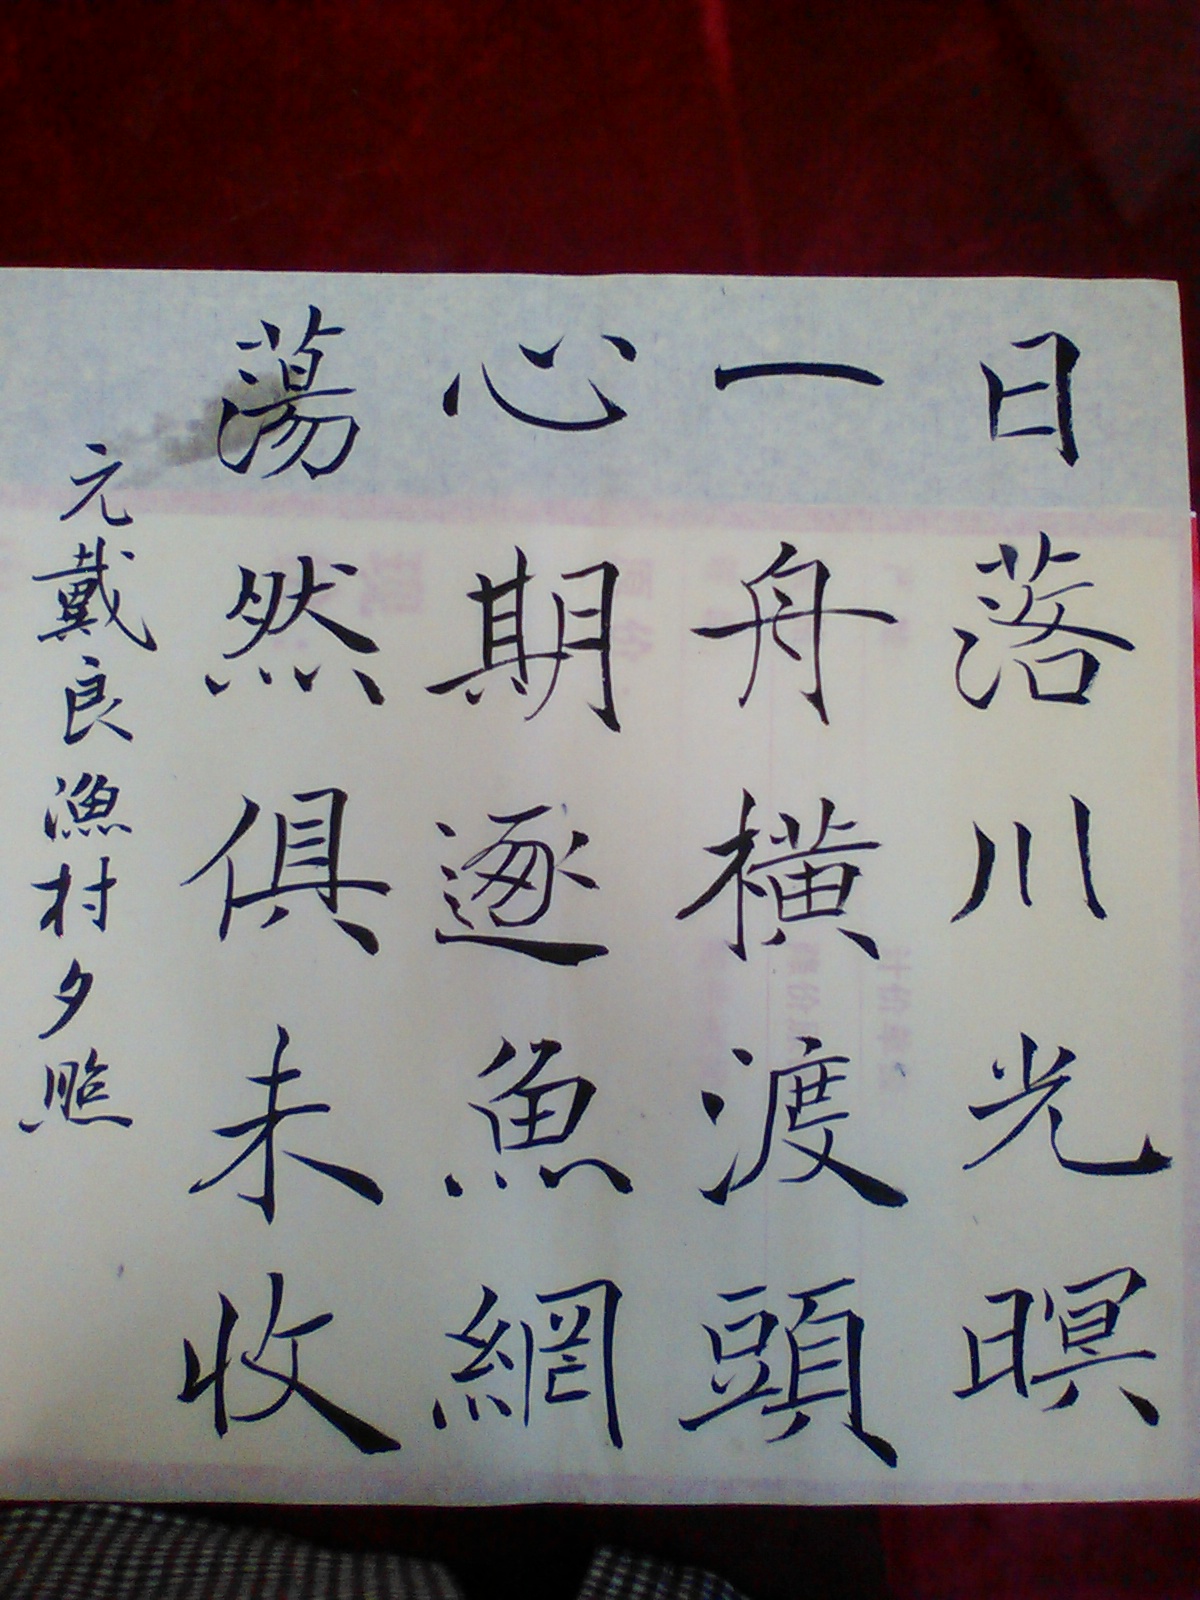 日落川光暝
一舟橫渡頭
心期逐魚網
蕩然俱未收
元戴良漁村夕照